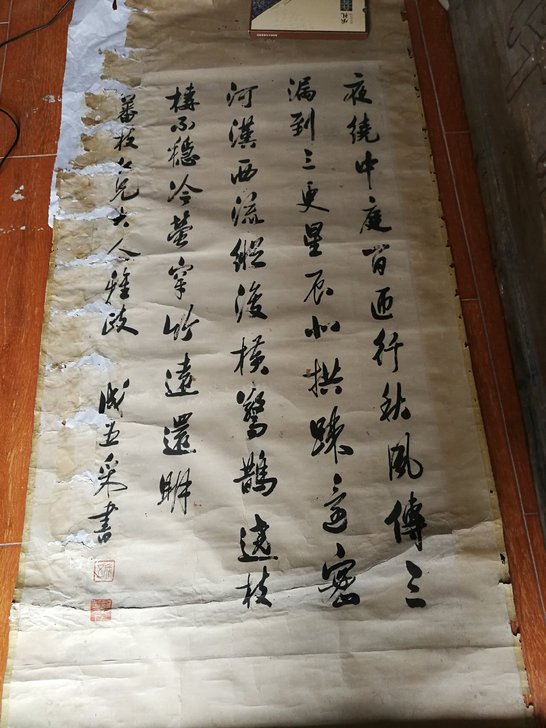 夜繞中庭百匝行秋風傳三
漏到三更星辰北拱踈密
河漢西流縱復橫驚鵲遶枝
棲不穩冷螢穿竹遠還明
枝仁兄大人雅政 成五采書